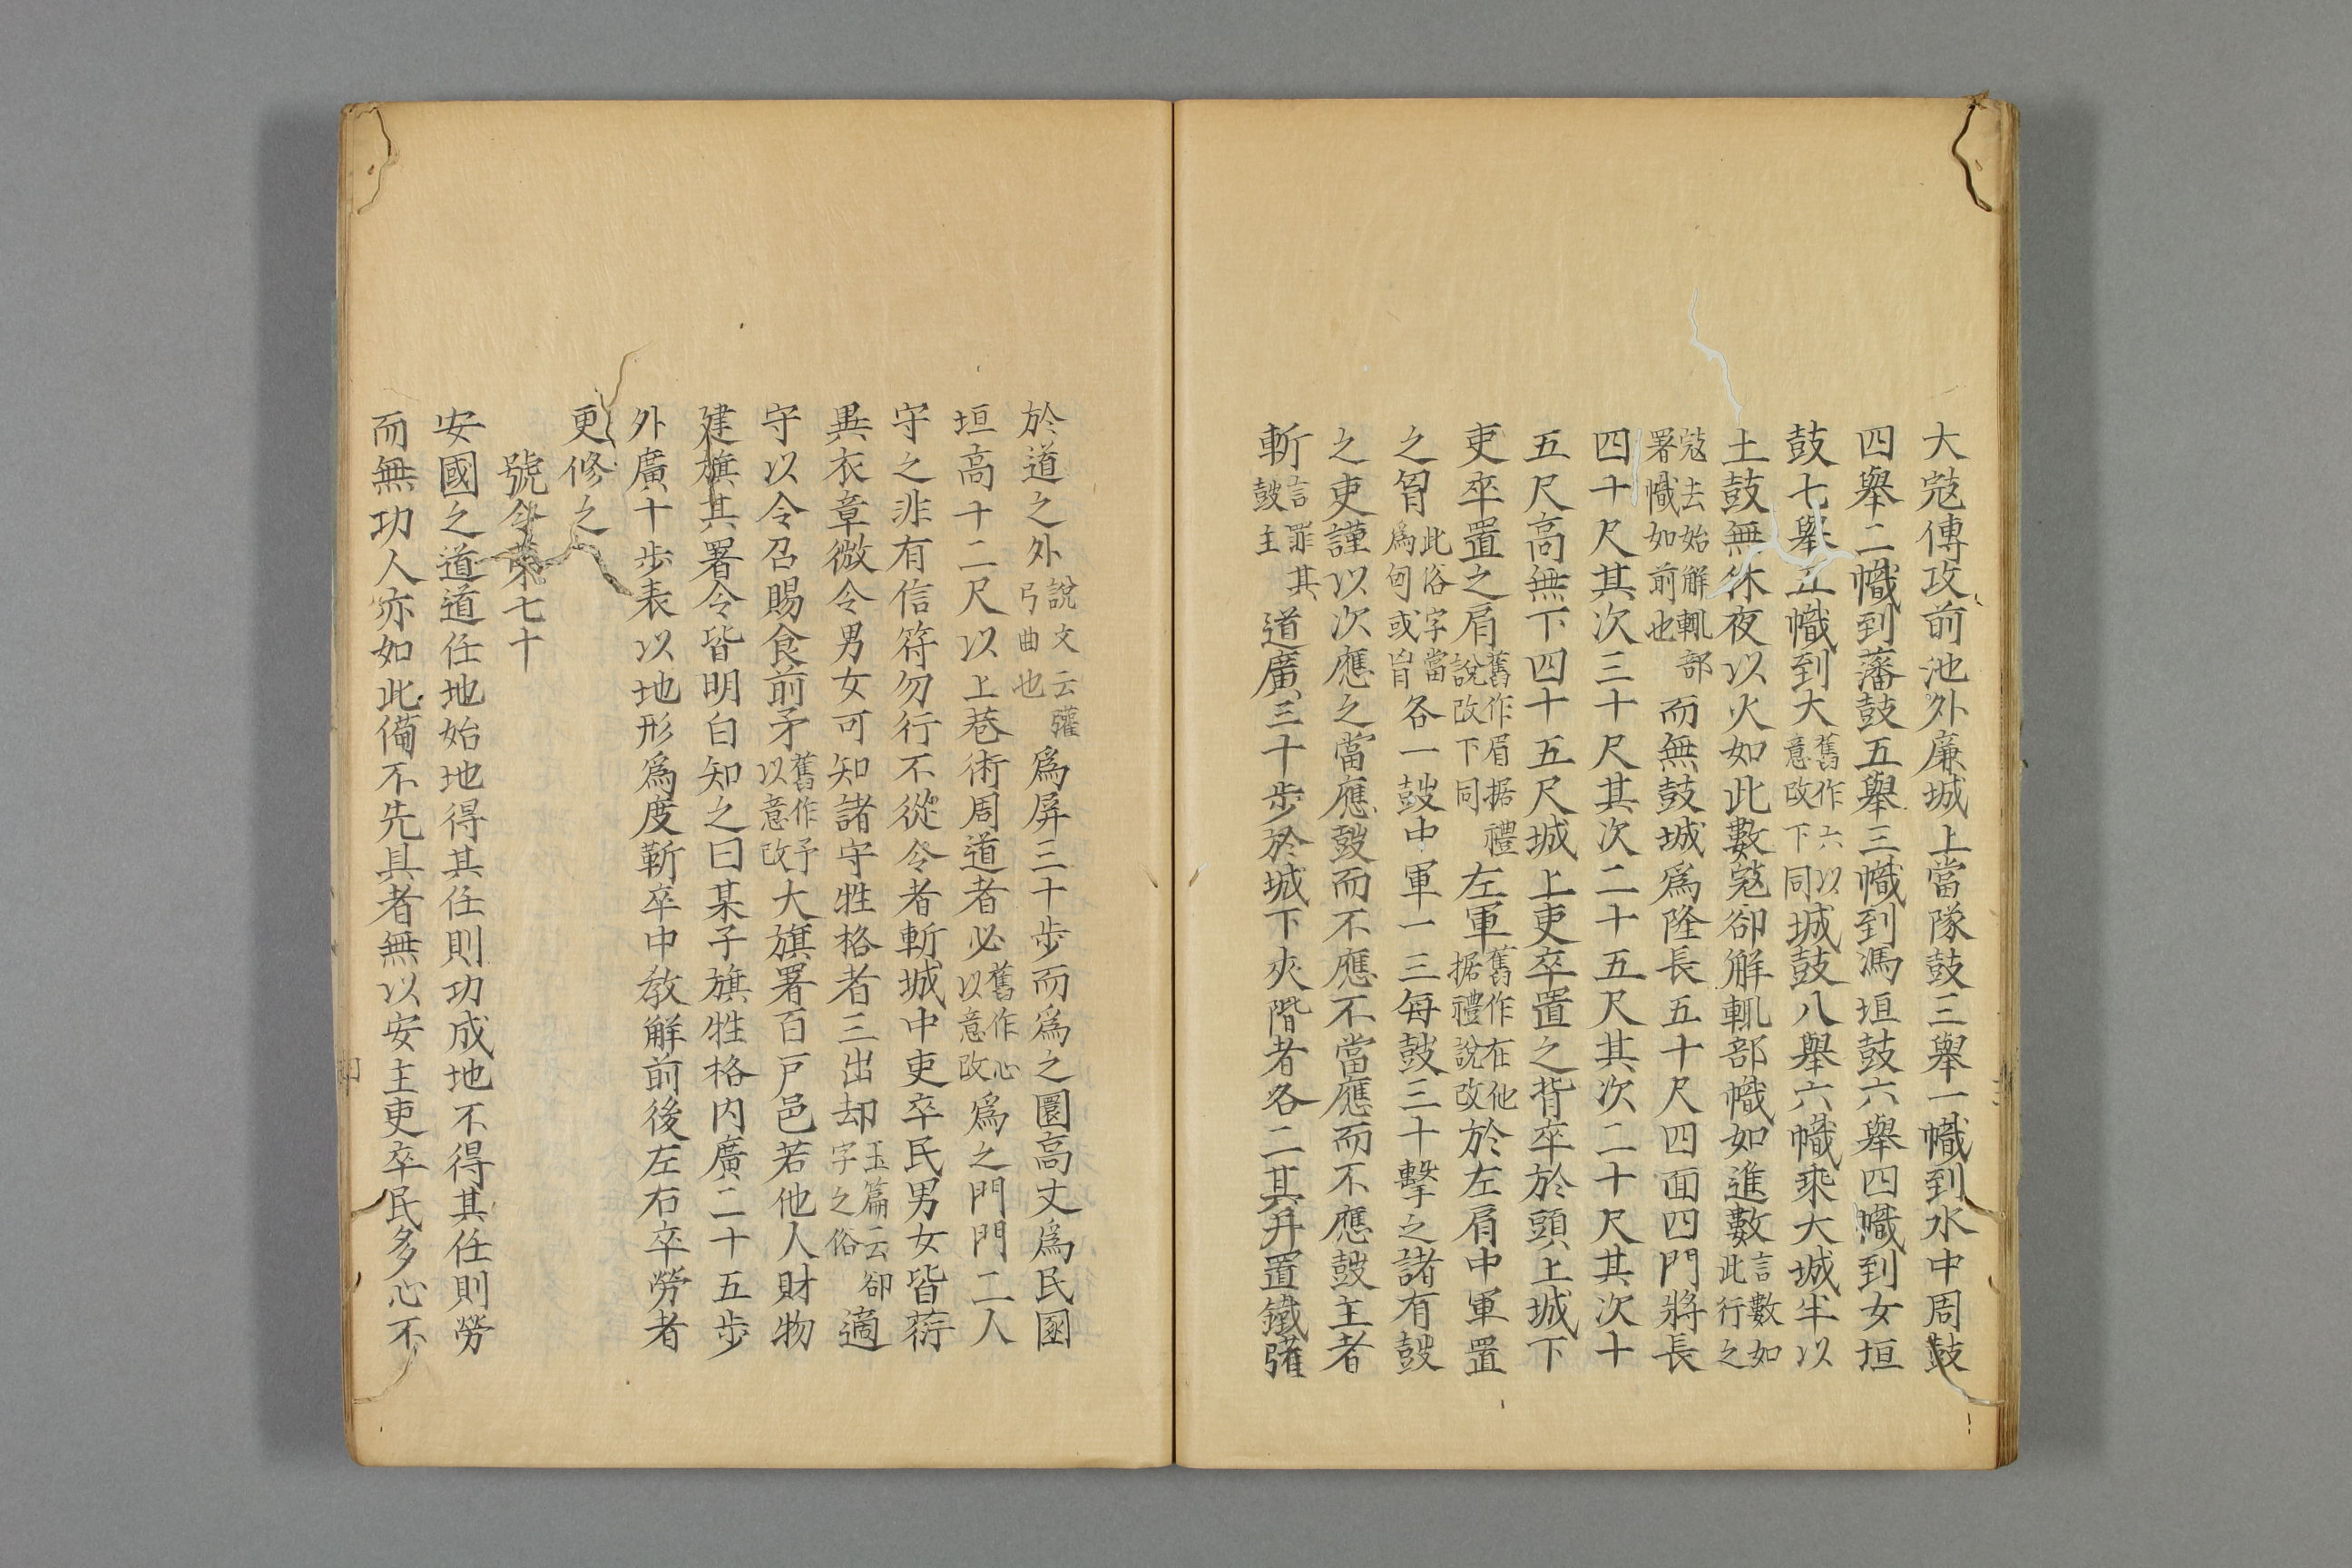 大寇傅攻前池外廉城上當隊鼓三舉一幟到水中周鼓
四舉二幟到藩鼓五舉三幟到馮垣鼓六舉四幟到女垣
鼓七舉五幟到大舊作六以意改下同城鼓八舉六幟乘大城半以
土鼓無休夜以火如此數寇卻解輒部幟如進數言數如此行之
寇去始解輒部署幟如前也而無鼓城爲隆長五十尺四面四門將長
四十尺其次三十尺其次二十五尺其次二十尺其次十
五尺高無下四十五尺城上吏卒置之背卒於頭上城下
吏卒置之肩舊作眉据禮說改下同左軍舊作在他据禮說改於左肩中軍置
之胷此俗字當爲匈或肖各一鼓中軍一三每鼓三十擊之諸有鼓
之吏謹以次應之當應鼓而不應不當應而不應鼓主者
斬言罪其鼓主道廣三十步於城下夾階者各二其井置鐵䧺
於道之外說文云弓曲也爲屏三十步而爲之圜高丈爲民圂
垣高十二尺以上巷術周道者必舊作心以意改爲之門門二人
守之非有信符勿行不從令者斬城中吏卒民男女皆葕
異衣章微令男女可知諸守牲格者三出却玉篇云卻字之俗適
守以令召賜食前矛舊作予以意改大旗署百戸邑若他人財物
建旗其署令皆明白知之曰某子旗牲格内廣二十五步
外廣十步表以地形爲度靳卒中敎解前後左右卒勞者
更修之
號令第七十
安國之道道任地始地得其任則功成地不得其任則勞
而無功人亦如此備不先具者無以安主吏卒民多心不